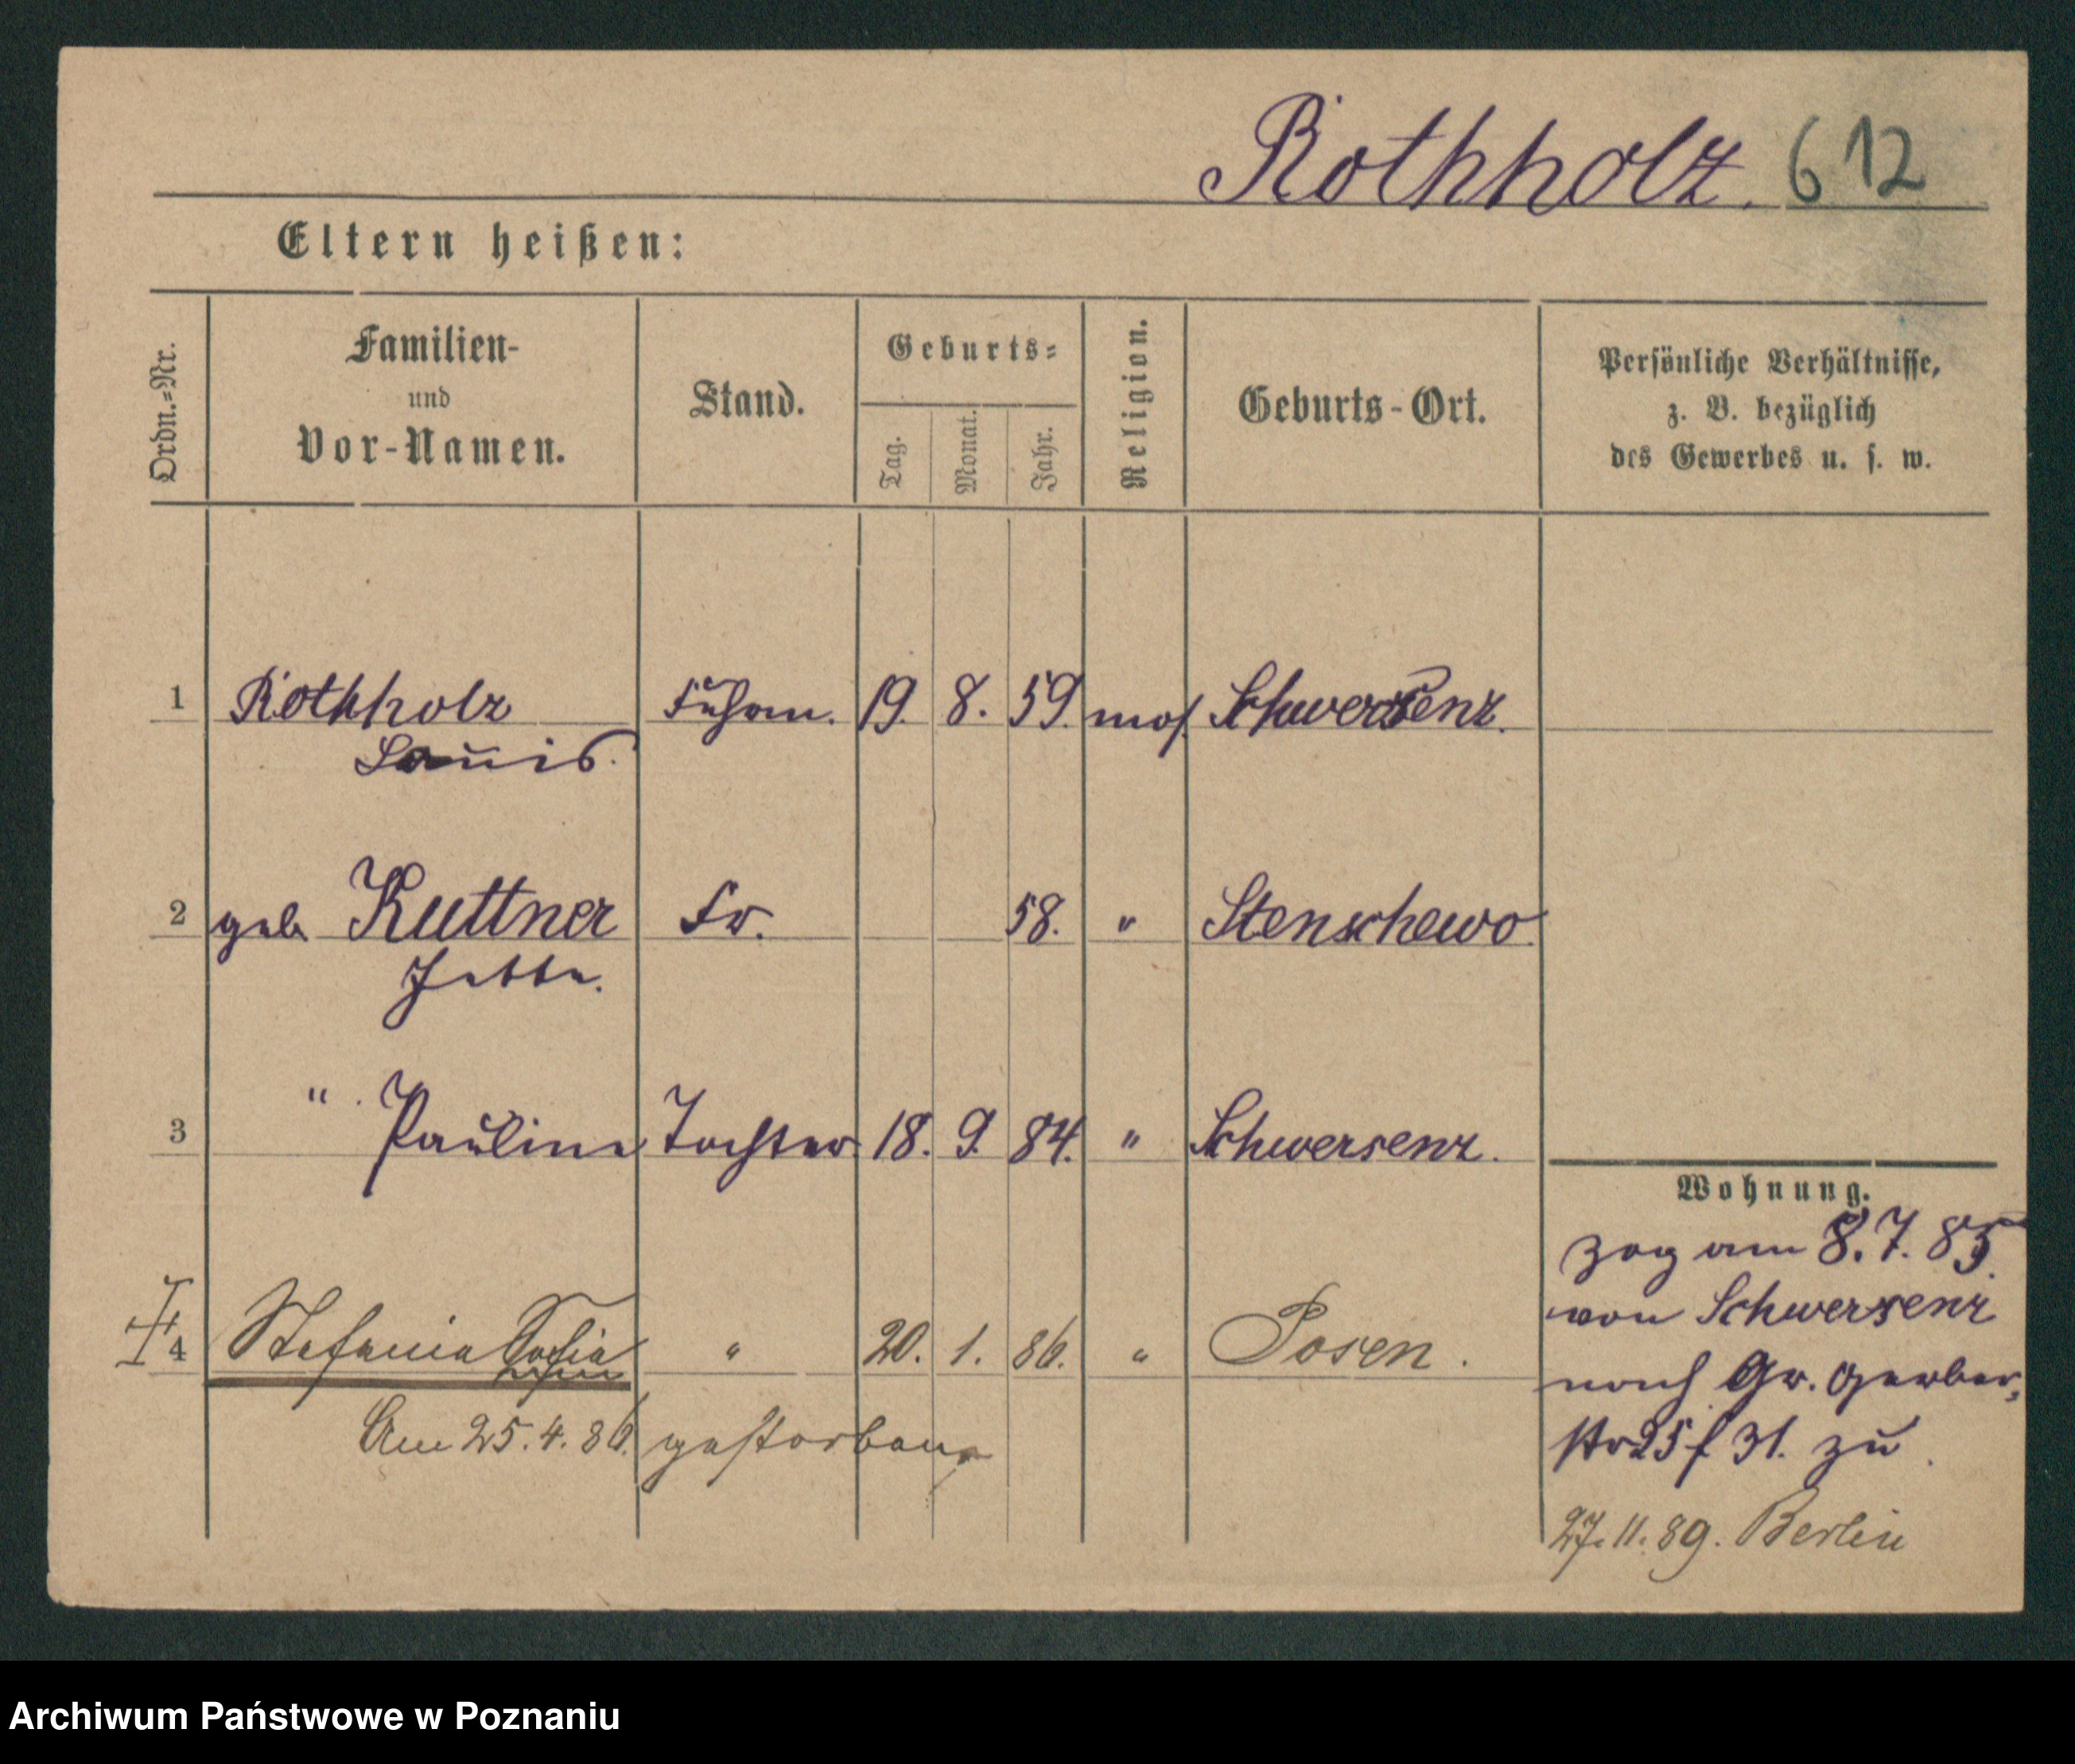 Rothholz. 612
Eltern heißen:
Ordn.=Nr.
Familien-
und
Vor-Namen.
Stand.
Geburts=
Tag.
Monat.
Jahr.
Religion.
Geburts-Ort.
Persönliche Verhältnisse,
z. B. bezüglich
des Gewerbes u. s. w.
1 Rothholz 19. 8. 59. mos. Schwersenz.
Louis.
2 geb Kuttner Fr. 58. " Stenschewo
Jette.
3 " Pauline Tochter 18. 9. 84. " Schwersenz.
4 Stefania " 20. 1. 86. " Posen.
Am 25.4.86. gestorben
Wohnung.
zog am 8.7.85.
von Schwersenz
nach Gr. Gerber=
str 25 f 31. zu
27.11.89. Berlin
Archiwum Państwowe w Poznaniu